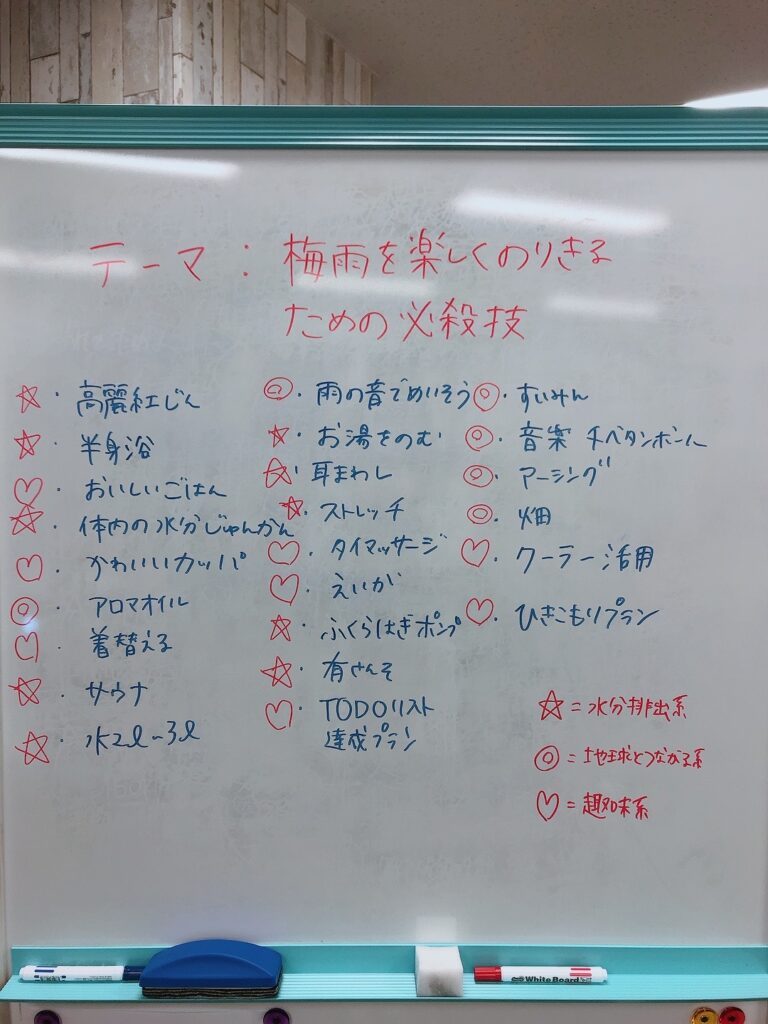 テーマ：梅雨を楽しくのりきる
ための必殺技
☆・高麗紅じん
☆・半身浴
♡・おいしいごはん
☆・体内の水分じゅんかん
♡・かわいいカッパ
◎・アロマオイル
♡・着替える
☆・サウナ
☆・水2ℓ~3ℓ
◎・雨の音でめいそう
☆・お湯をのむ
☆・耳まわし
☆・ストレッチ
♡・タイマッサージ
♡・えいが
☆・ふくらはぎポンプ
☆・有さんそ
♡・TODOリスト
達成プラン
◎・すいみん
◎・音楽 チベタンボール
◎・アーシング
◎・畑
♡・クーラー活用
♡・ひきこもりプラン
☆=水分排出系
◎=地球とつながる系
♡=趣味系
White Board